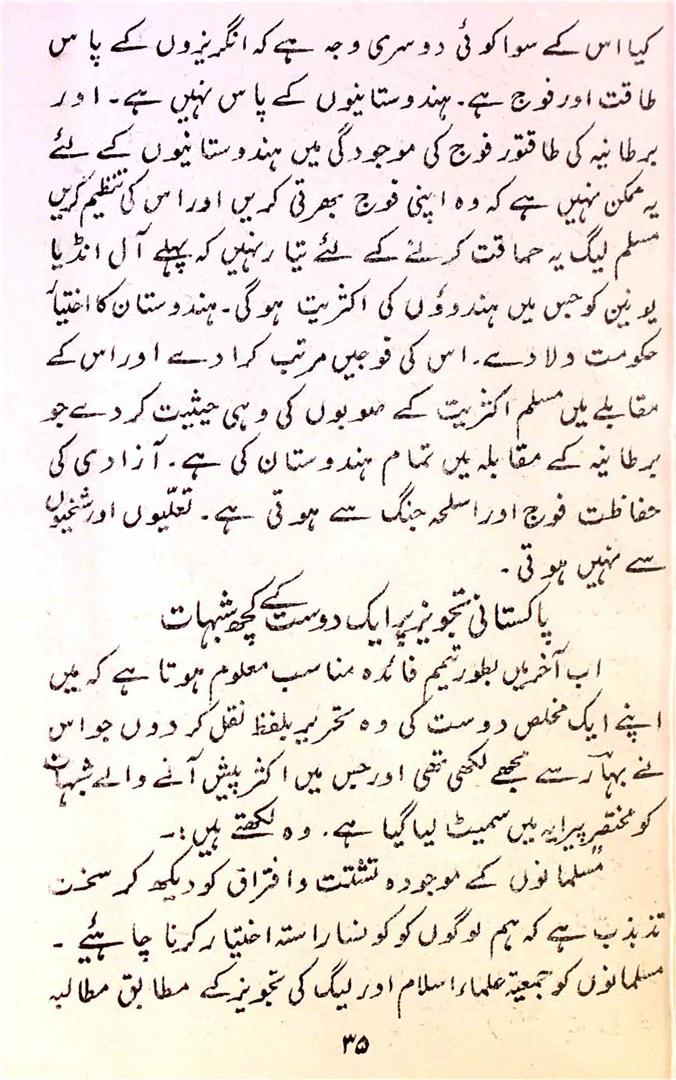 کیا اس کے سوا کوئی دوسری وجہ ہے کہ انگریزوں کے پاس
طاقت اور فوج ہے۔ ہندوستانیوں کے پاس نہیں ہے۔ اور
برطانیہ کی طاقتور فوج کی موجودگی میں ہندوستانیوں کے لئے
یہ ممکن نہیں ہے کہ وہ اپنی فوج بھرتی کریں اور اس کی تنظیم کریں
مسلم لیگ یہ حماقت کرنے کے لئے تیار نہیں کہ پہلے آل انڈیا
یونین کو جس میں ہندوؤں کی اکثریت ہوگی۔ ہندوستان کا اختیار
حکومت دلا دے۔ اس کی فوجیں مرتب کرا دے اور اس کے
مقابلے میں مسلم اکثریت کے صوبوں کی وہی حیثیت کر دے جو
برطانیہ کے مقابلہ میں تمام ہندوستان کی ہے۔ آزادی کی
حفاظت فوج اور اسلحہ جنگ سے ہوتی ہے۔ تعلّیوں اور شیخیوں
سے نہیں ہوتی۔
پاکستانی تجویز پر ایک دوست کے کچھ شبہات
اب آخر میں بطور تتمیم فائدہ مناسب معلوم ہوتا ہے کہ میں
اپنے ایک مخلص دوست کی وہ تحریر بلفظ نقل کر دوں جو اس
نے بہار سے مجھے لکھی تھی اور جس میں اکثر پیش آنے والے شبہات
کو مختصر پیرایہ میں سمیٹ لیا گیا ہے۔ وہ لکھتے ہیں:۔
"مسلمانوں کے موجودہ تشتت و افتراق کو دیکھ کر سخت
تذبذب ہے کہ ہم لوگوں کو کونسا راستہ اختیار کرنا چاہئیے۔
مسلمانوں کو جمعیۃ علماء اسلام اور لیگ کی تجویز کے مطابق مطالبہ
۳۵